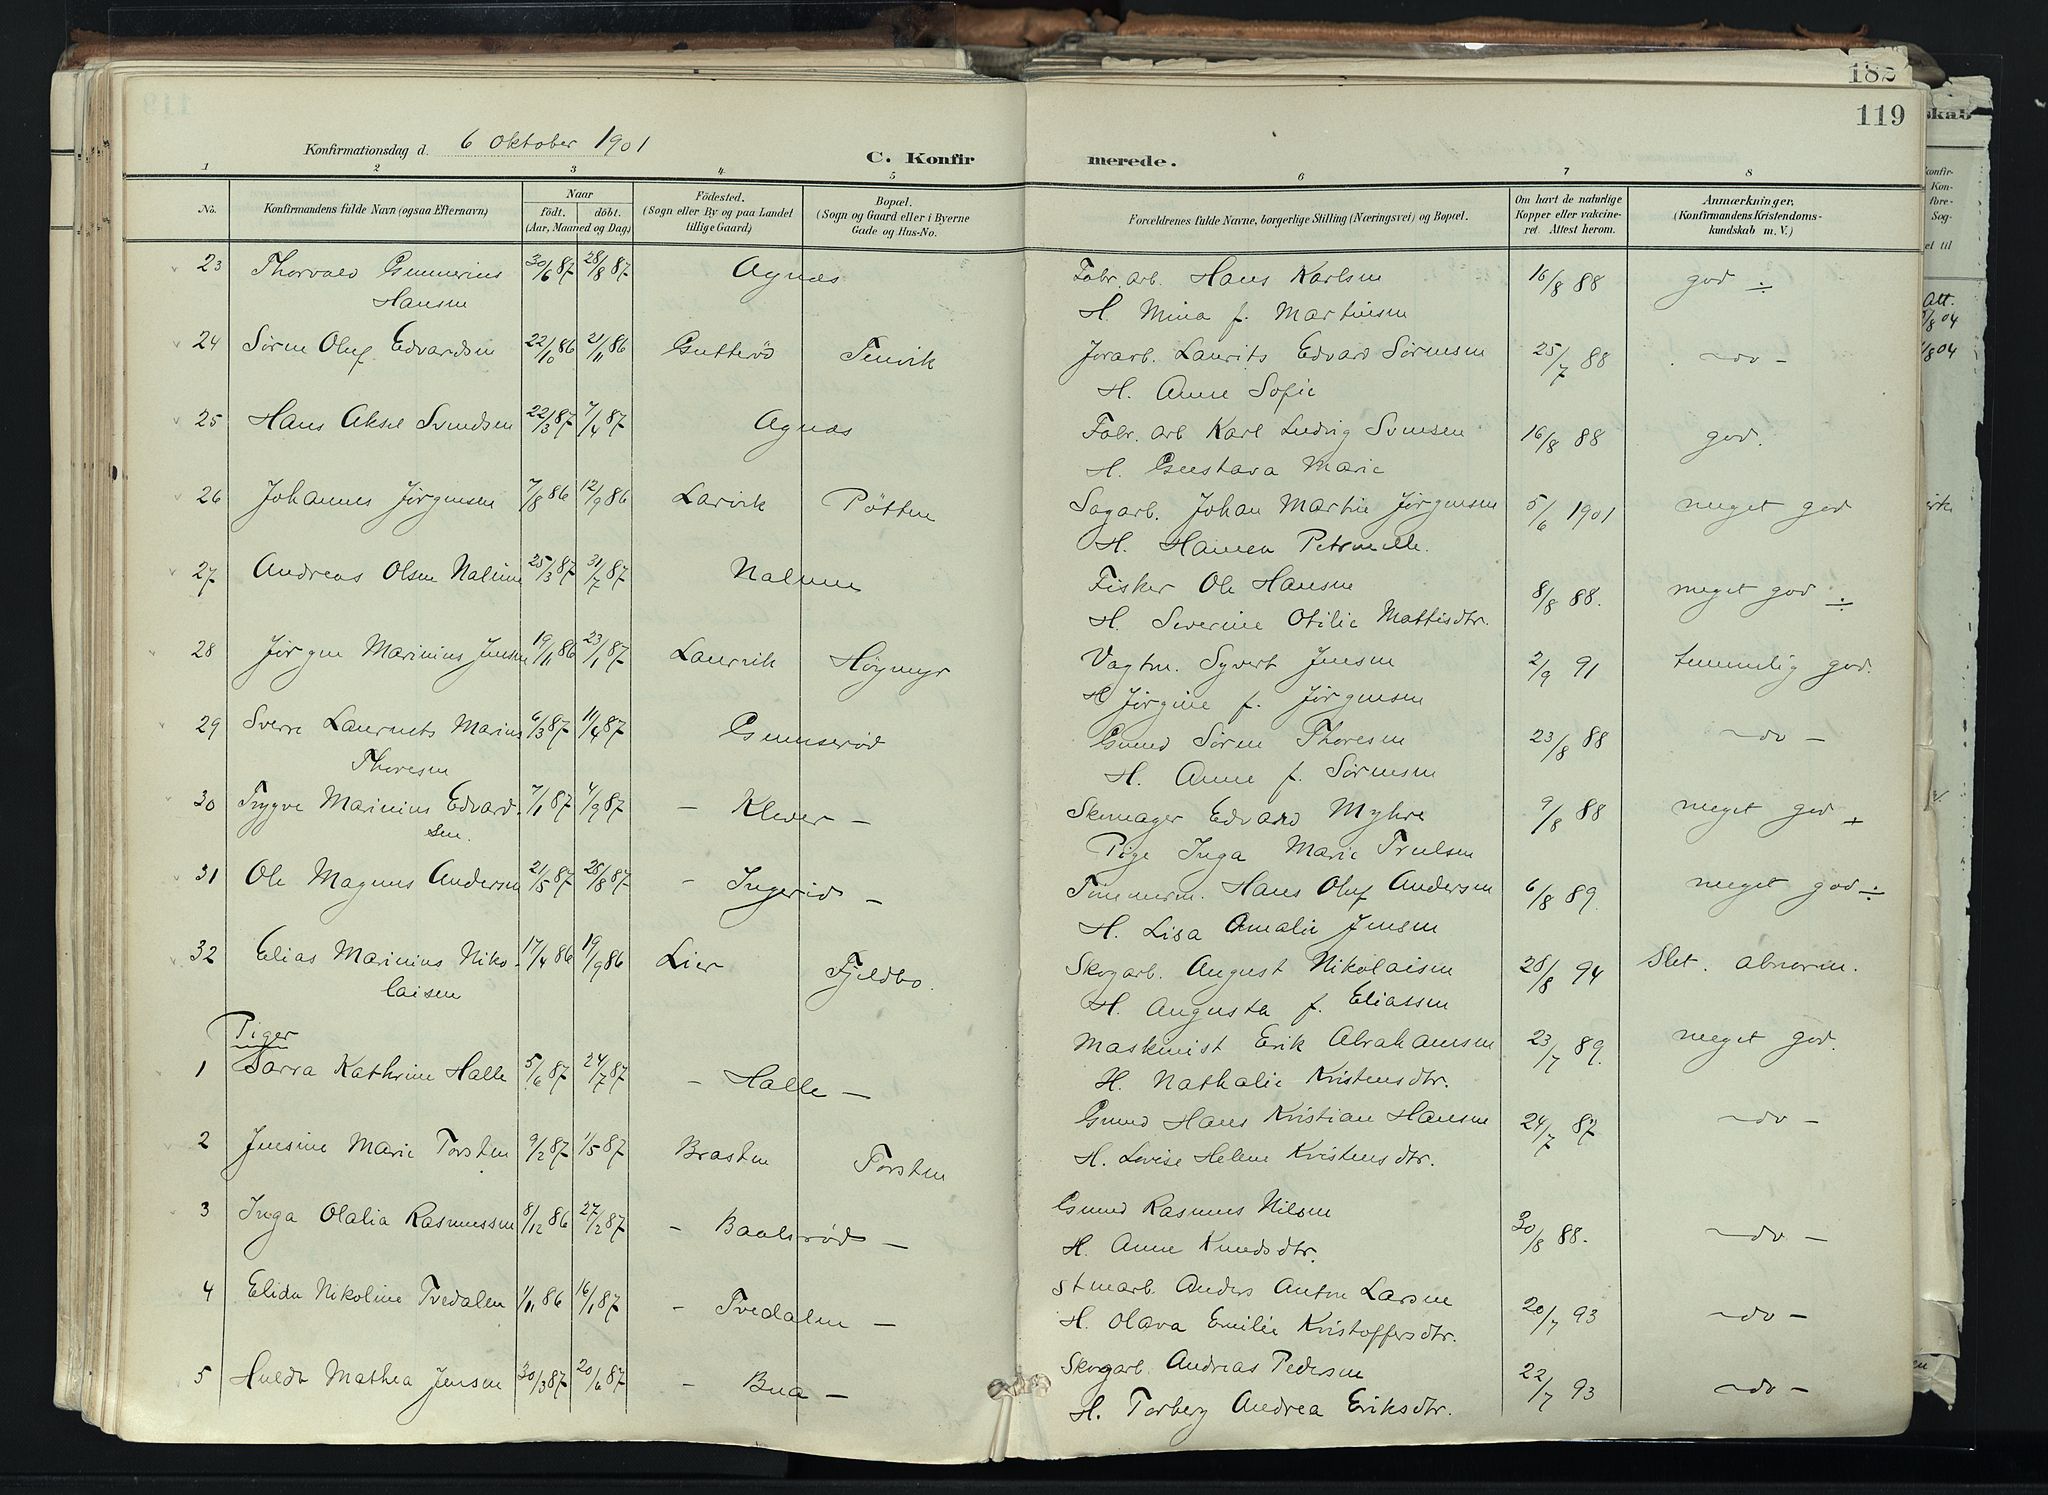 182
119
Konfirmationsdag d. 6 Oktober 1901
C. Konfirmerede.
1 2 3 4 5 6 7 8
No.
Konfirmandens fulde Navn (ogsaa Efternavn)
Naar
födt. döbt.
(Aar, Maaned og Dag)
Födested.
(Sogn eller By og paa Landet
tillige Gaard)
Bopæl.
(Sogn og Gaard eller i Byerne
Gade og Hus-No.
Forældrenes fulde Navne, borgerlige Stilling (Næringsvei) og Bopæl.
Om havt de naturlige
Kopper eller vakcine-
ret. Attest herom.
Anmærkninger,
(Konfirmandens Kristendoms-
kundskab m. V.)
23 Thorvald Gunnerius 30/6 87 28/8 87 Agnæs Fabr. arb. Hans Karlsen 16/8 88 god ÷
Hansen H. Mina f. Martinsen
24 Søren Oluf Edvardsen 22/10 86 21/11 86 Gutterød Tenvik Jorarb. Laurits Edvard Sørensen 25/7 88 - do -
H. Anne Sofie
25 Hans Aksel Svendsen 22/3 87 7/4 87 Agnæs Fabr. arb Karl Ludvig Svensen 16/8 88 god.
H. Gustava Marie
26 Johannes Jørgensen 7/8 86 12/9 86 Larvik Pøtten Sagarb. Johan Martin Jørgensen 5/6 1901 meget god
H. Hansen Petronelle.
27 Andreas Olsen Nalum 25/3 87 31/7 87 Nalum Fisker Ole Hansen 8/8 88. meget god ÷
H. Severine Otilie Mattisdtr.
28 Jørgen Marinius Jensen 19/11 86 23/1 87 Laurvik Høymyr Vagtm. Syvert Jensen 2/9 91 temmelig god.
H Jørgine f. Jørgensen
29 Sverre Laurentz Marius 6/3 87 11/4 87 Gunnerød Grmd Søren Thoresen 23/8 88 - do -
Thoresen H. Anne f. Sørensen
30 Trygve Marinius Edvard- 7/1 87 4/9 87 - Klever - Skomager Edvard Myhre 9/8 88 meget god +
sen. Pige Inga Marie Trulsen
31 Ole Magnus Andersen 21/5 87 28/8 87 - Ingerid - Tømmerm. Hans Oluf Andersen 6/8 89. meget god ÷
H. Lisa Amalie Jensen
32 Elias Marinius Niko- 17/4 86 19/9 86 Lier Fjeldbo. Skogarb. August Nikolaisen 28/8 94 Slet. abnorm.
laisen H. Augusta f. Eliassen
Piger
1 Sarra Kathrine Halle 5/6 87 24/7 87 - Halle - Maskinist Erik Abrahamsen 23/7 89. meget god.
H. Nathalie Kristensdtr.
2 Jensine Marie Torsten 9/2 87 1/5 87 Brasten Torsten Grmd Hans Kristian Hansen 24/7 87 - do -
H. Lovise Helene Kristensdtr.
3 Inga Olalia Rasmussen 8/12 86 27/2 87 - Baalsrød - Grmd Rasmus Nilsen 30/8 88. - do -
H. Anne Knudsdtr.
4 Elida Nikoline Tvedalen 1/11 86 16/1 87 - Tvedalen - Stenarb. Anders Anton Larsen 20/7 93 - do -
H. Olava Emilie Kristoffersdtr.
5 Huldt Mathea Jensen 30/3 87 20/6 87 - Bua - Skogarb. Andreas Pedersen 22/7 93 - do -
H. Torberg Andrea Eriksdtr.